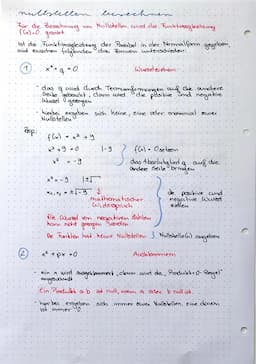 nullstellen berechnen
Für die Berechnung von Nullstellen wird die Funktionsgleichung
f(x)=0 gesetzt
Ist die Funktionsgleichung der Parabel in der Normalform gegeben,
wird zwischen folgenden drei Formen unterschieden:
① x² + q = 0 Wurzelziehen
- das q wird durch Termumformungen auf die andere
Seite gebracht, dann wird die positive und negative
Wurzel gezogen
- hierbei ergeben sich keine, eine oder maximal zwei
Nullstellen
Bsp:
f(x) = x² + 9
x² + 9 = 0 | - 9
f(x) = 0 setzen
x² = -9
das Absolutglied q auf die
andere Seite bringen
x² = -9 | ±√
x₁, x₂ = ±√-9
die positive und
negative Wurzel
ziehen
mathematischer
Widerspruch
Die Wurzel von negativen Zahlen
kann nicht gezogen werden
Die Funktion hat keine Nullstellen
Nullstelle(n) angeben
② x² + px = 0 Ausklammern
- ein x wird ausgeklammert, dann wird die „Produkt-0-Regel"
angewandt
Ein Produkt a·b ist null, wenn a oder b null ist.
- hierbei ergeben sich immer zwei Nullstellen, eine davon
ist immer 0